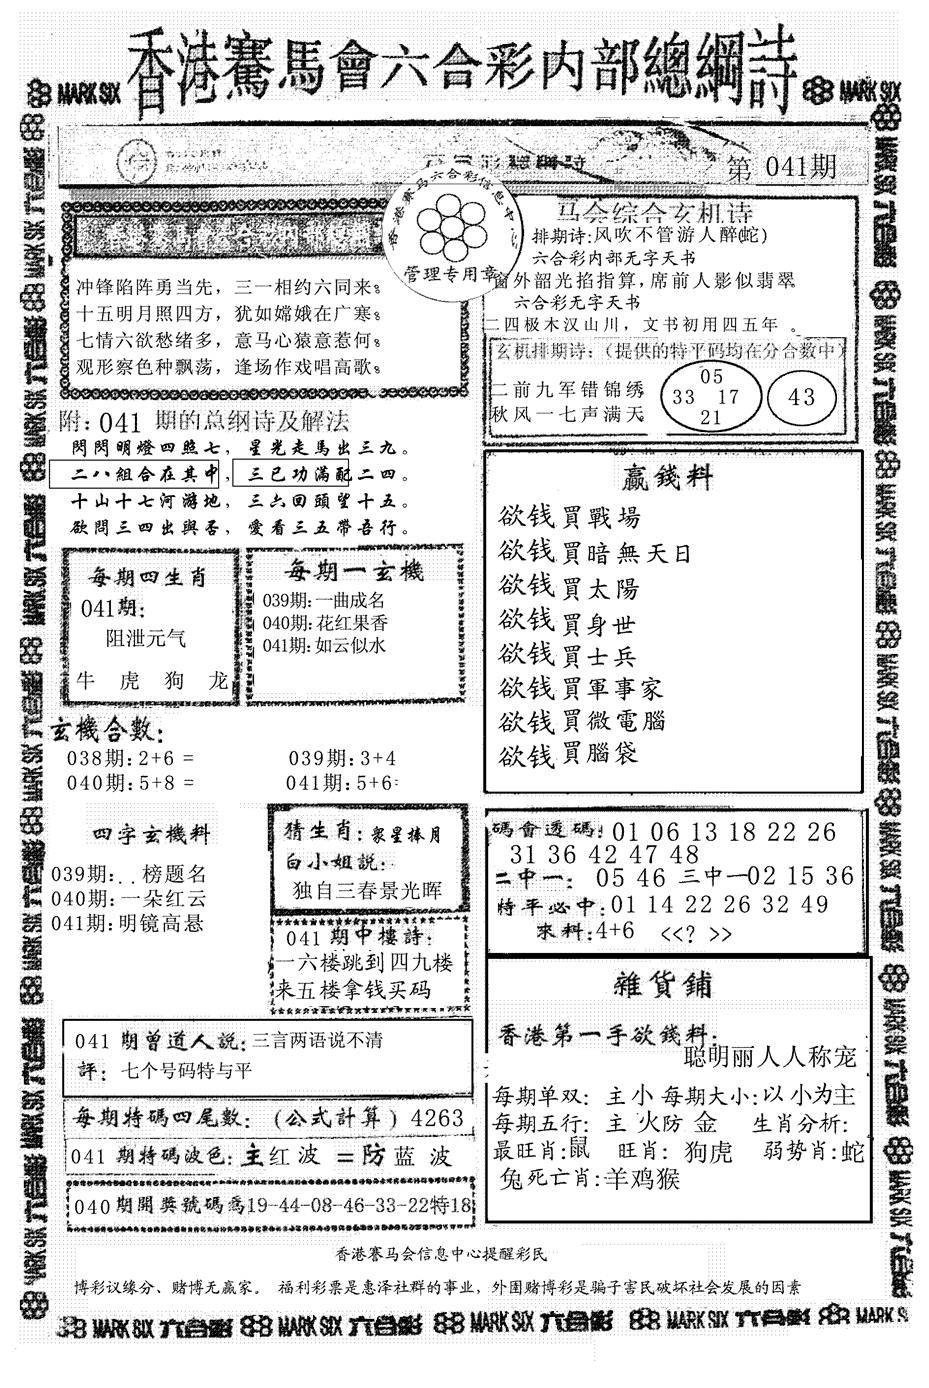 香港賽馬會六合彩内部總綱詩
MARK SIX
MARK SIX
第 041期
香港赛马六合彩信息中心
管理专用章
冲锋陷阵勇当先，三一相约六同来。
十五明月照四方，犹如嫦娥在广寒。
七情六欲愁绪多，意马心猿意惹何。
观形察色种飘荡，逢场作戏唱高歌。
马会综合玄机诗
排期诗:风吹不管游人醉(蛇)
六合彩内部无字天书
窗外韶光掐指算,席前人影似翡翠
六合彩无字天书
二四极木汉山川，文书初用四五年 。
玄机排期诗：（提供的特平码均在分合数中）
二前九军错锦绣
秋风一七声满天
05
33 17
21
43
附：041 期的总纲诗及解法
閃閃明燈四照七，星光走馬出三九。
二八組合在其中，三已功滿配二四。
十山十七河游地，三六回頭望十五。
欲問三四出與否，愛看三五帶吾行。
每期四生肖
041期：
阻泄元气
牛 虎 狗 龙
每期一玄機
039期:一曲成名
040期:花红果香
041期:如云似水
赢錢料
欲钱買戰場
欲钱買暗無天日
欲钱買太陽
欲钱買身世
欲钱買士兵
欲钱買軍事家
欲钱買微電腦
欲钱買腦袋
玄機合數：
038期:2+6 =
039期:3+4
040期:5+8 =
041期:5+6=
四字玄機料
039期:..榜题名
040期:一朵红云
041期:明镜高悬
猜生肖：衆星捧月
白小姐説：
独自三春景光晖
041 期中樓詩：
一六楼跳到四九楼
来五楼拿钱买码
碼會透碼：01 06 13 18 22 26
31 36 42 47 48
二中一： 05 46 三中一02 15 36
特平必中：01 14 22 26 32 49
來料：4+6 <<? >>
雜貨鋪
香港第一手欲錢料：
聪明丽人人称宠
每期单双：主小 每期大小：以小为主
每期五行：主 火防 金 生肖分析：
最旺肖:鼠 旺肖：狗虎 弱势肖:蛇
兔死亡肖:羊鸡猴
041 期曾道人説：三言两语说不清
評：七个号码特与平
每期特碼四尾數：（公式計算）4263
041 期特碼波色：主红波 =防蓝波
040期開獎號碼爲19-44-08-46-33-22特18
香港赛马会信息中心提醒彩民
博彩议缘分、赌博无赢家。 福利彩票是惠泽社群的事业，外围赌博彩是骗子害民破坏社会发展的因素
MARK SIX 六合彩 MARK SIX 六合彩 MARK SIX 六合彩 MARK SIX 六合彩 MARK SIX